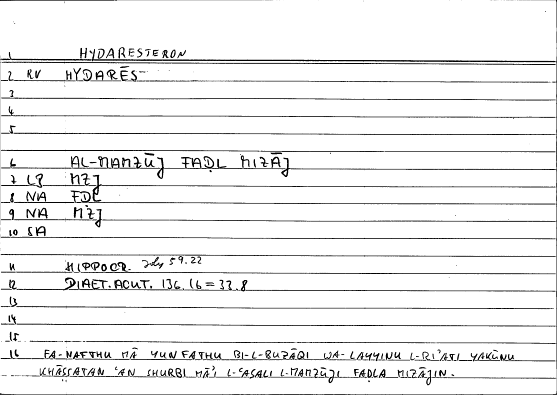 1 HYDARESTERON
2 RV HYDARĒS
3
4
5
6 AL-MAMZŪJ FAḌL MIZĀJ
7 LB MZJ
8 NA FḌL
9 NA MZJ
10 SA
11 HIPPOCR. 59.22
12 DIAET. ACUT. 136.16 = 33.8
13
14
15
16 FA-NAFTHU MĀ YUNFATHU BI-L-BUZĀQI WA-LAYYINU L-RI'ATI YAKŪNU
KHĀṢṢATAN ʿAN SHURBI MĀ'I L-ʿASALI L-MAMZŪJI FAḌLA MIZĀJIN.